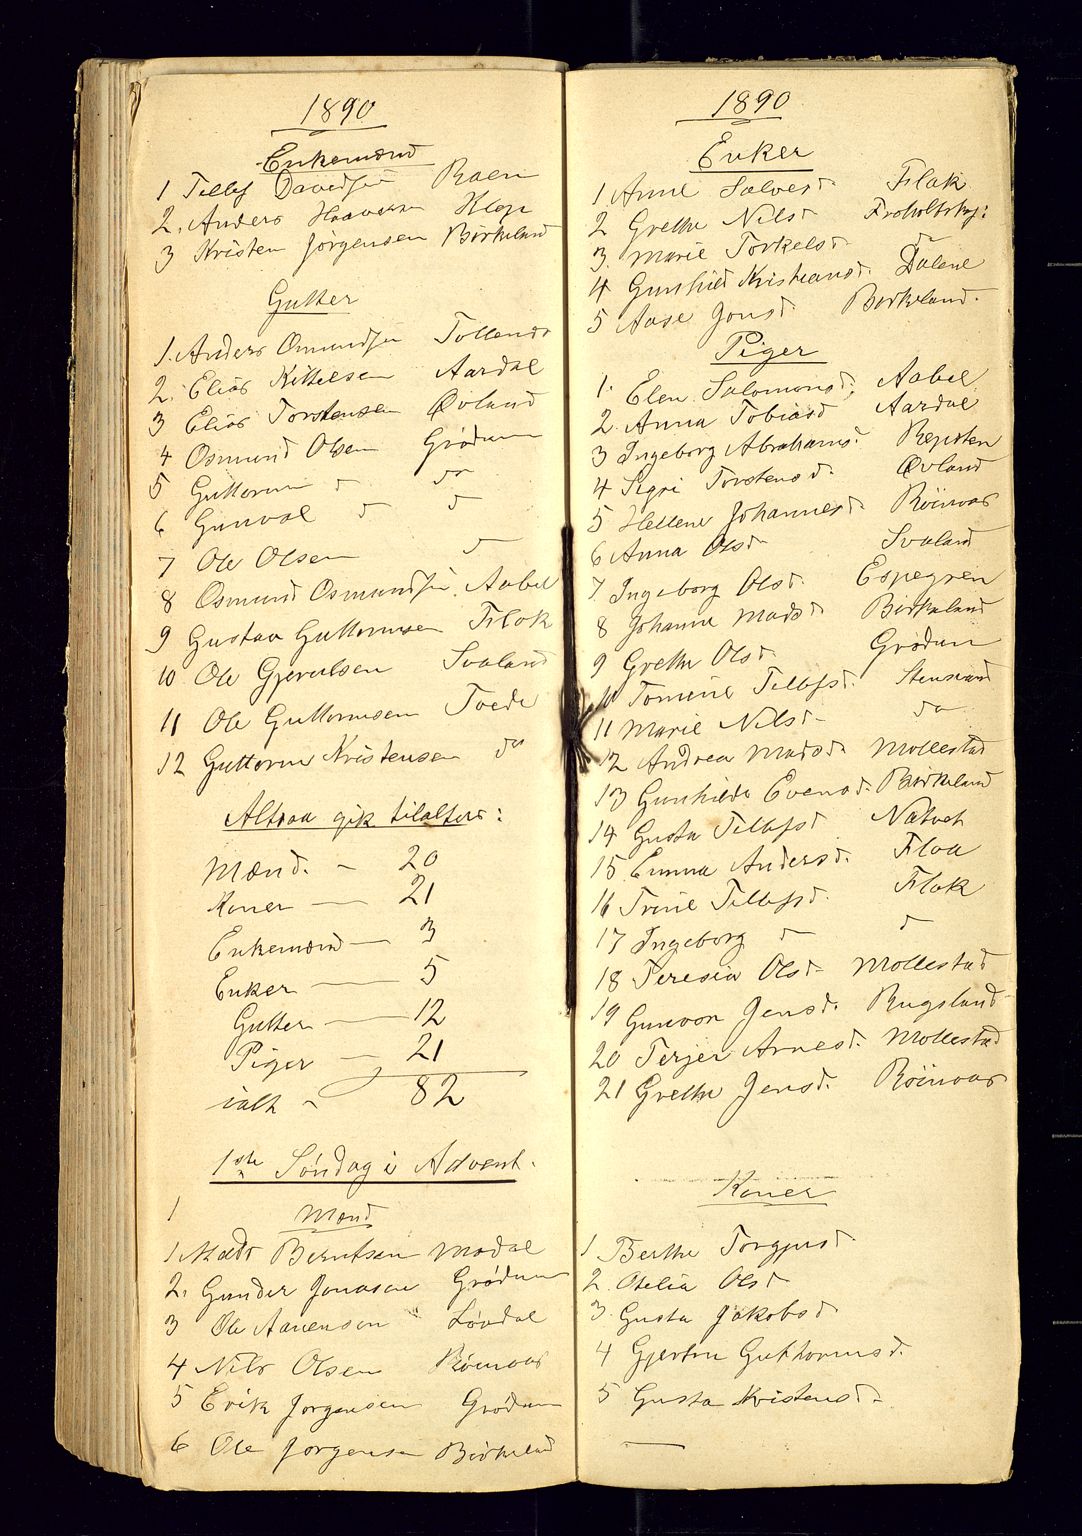 1890
Enkemænd
1 Tellef Davidsen Raen
2. Anders Haaversen Klep
3 Kristen Jørgensen Birkeland
Gutter
1. Anders Omundsen Tollends
2. Elias Kittelsen Aardal
3 Elias Torstensen Øvland
4 Osmund Olsen Grødum
5 Guttorm d do
6 Gunval d d
7 Ole Olsen d
8 Osmund Osmundsen Aabel
9 Gustav Guttormsen Flak
10 Ole Gjerulsen Svaland
11 Ole Guttormsen Tvede
12 Guttorm Kristensen do
Altsaa gik tilalters:
Mænd. - 20
Koner - 21
Enkemænd - 3
Enker - 5
Gutter - 12
Piger - 21
ialt - 82
1ste Søndag i Advent.
1 Mænd
1. Mads Berntsen Modal
2. Gunder Jonasen Grødum
3 Ole Aanensen Løvdal
4 Nils Olsen Röinvas
5 Erik Jørgensen Grødum
6 Ole Jørgensen Birkeland
1890
Enker
1 Anne Salvesd Flak
2 Grethe Nilsd Froholtskj:
3. Marie Torkelsd
4 Gunhild Kristiansd. Dalene
5 Aase Jonsd. Birkeland.
Piger
1. Elen Salomonsd. Aabel
2. Anna Tobiasd Aardal
3 Ingeborg Abrahamsd. Repsten
4 Sigri Torstensd. Øvland
5 Hellene Johannesd. Röinvas
6 Anna Olsd Svaland
7. Ingeborg Olsd. Espegren
8 Johanne Madsd Birkeland
9 Grethe Olsd. Grødum
10 Tomine Tellefsd. Stensvand
11 Marie Nilsd do
12 Andrea Madsd. Mollestad
13 Gunhilde Evensd. Birkeland
14 Gusta Tellefsd Natvet
15 Emma Andersd. Floa
16 Trine Tellefsd. Flak
17 Ingeborg d d
18 Teresia Olsd Mollestad
19 Gunvor Jensd. Rugsland
20 Terjer Arnesd. Mollestad
21 Grethe Jensd. Röinvas
Koner
1 Berthe Torgjusd
2. Otelia Olsd
3. Gusta Jakobsd
4 Gjertru Guthormsd.
5 Gusta Kristensd.